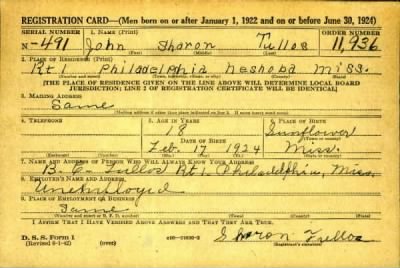 REGISTRATION CARD—(Men born on or after January 1, 1922 and on or before June 30, 1924)
SERIAL NUMBER 1. NAME (Print) ORDER NUMBER
N-491 John Sharon Tullos 11,936
(First) (Middle) (Last)
2. PLACE OF RESIDENCE (Print)
Rt 1 Philadelphia Neshoba Miss.
(Number and street) (Town, township, village, or city) (County) (State)
[THE PLACE OF RESIDENCE GIVEN ON THE LINE ABOVE WILL DETERMINE LOCAL BOARD
JURISDICTION; LINE 2 OF REGISTRATION CERTIFICATE WILL BE IDENTICAL]
3. MAILING ADDRESS
Same
4. TELEPHONE 5. AGE IN YEARS 6. PLACE OF BIRTH
18 Sunflower
DATE OF BIRTH
Feb. 17 1924 Miss.
7. NAME AND ADDRESS OF PERSON WHO WILL ALWAYS KNOW YOUR ADDRESS
B. C. Tullos Rt 1, Philadelphia, Miss.
8. EMPLOYER'S NAME AND ADDRESS
Unemployed
9. PLACE OF EMPLOYMENT OR BUSINESS
Same
I AFFIRM THAT I HAVE VERIFIED ABOVE ANSWERS AND THAT THEY ARE TRUE.
D. S. S. Form 1
(Revised 6-1-42) (over) Sharon Tullos
(Registrant's signature)